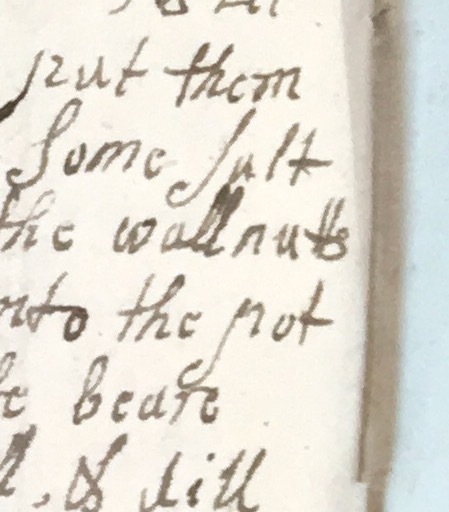 put them
Some salt
the wallnutts
nto the pot
beare
& dill